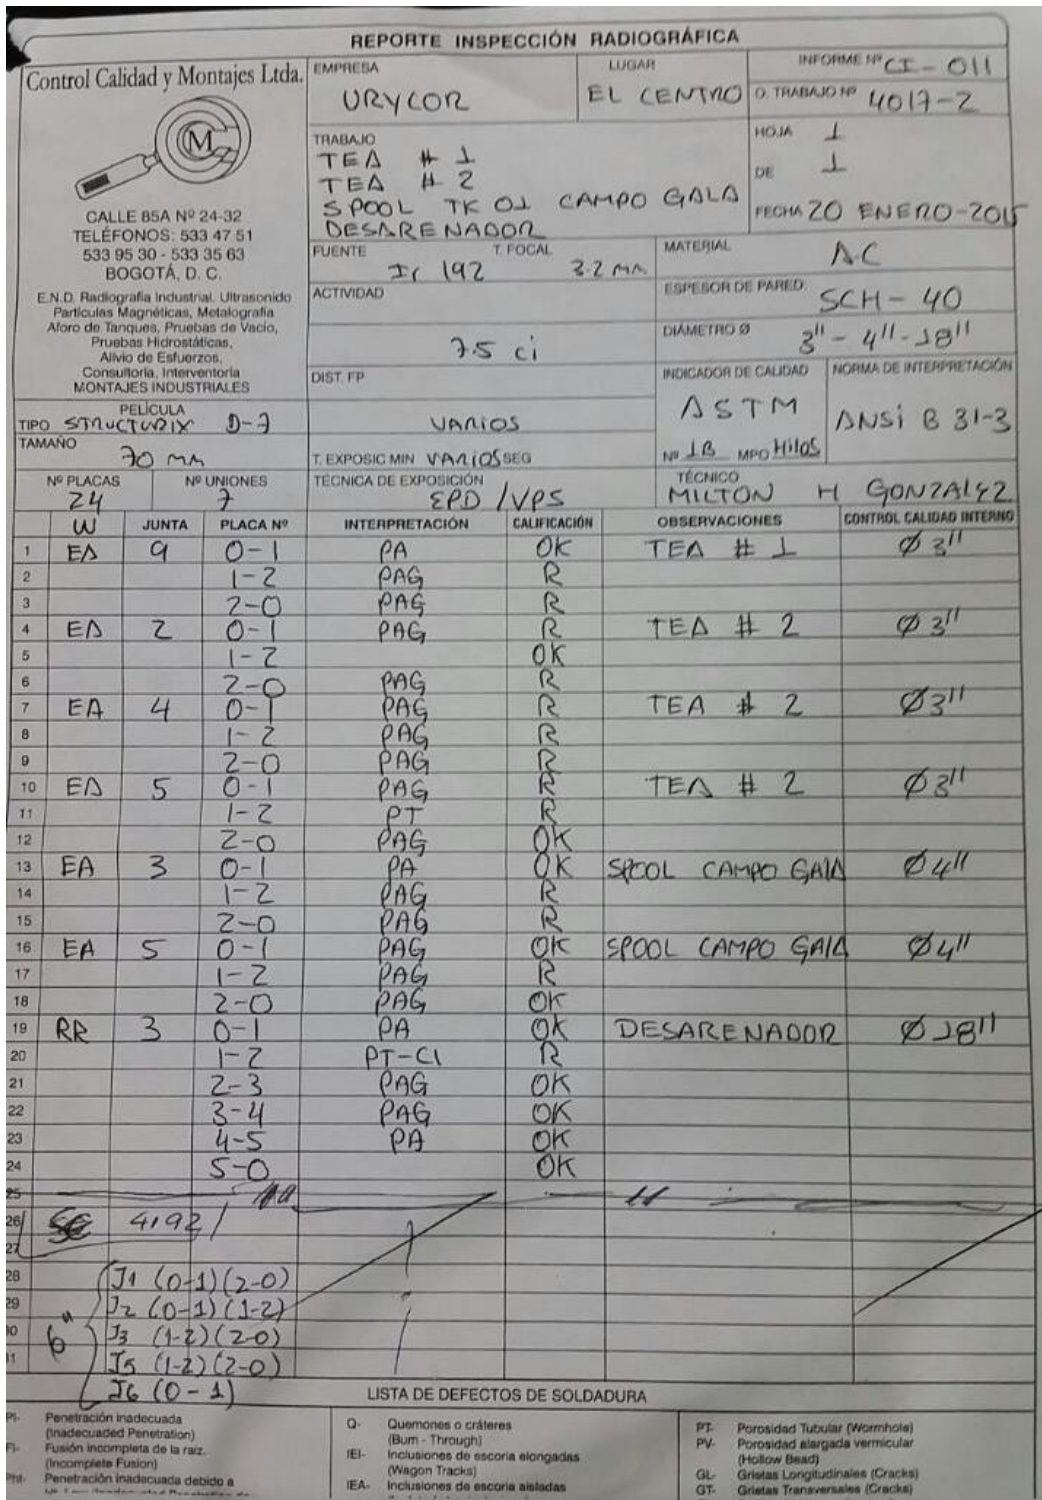 REPORTE INSPECCIÓN RADIOGRÁFICA
Control Calidad y Montajes Ltda.
CM
CALLE 85A Nº 24-32
TELÉFONOS: 533 47 51
533 95 30 - 533 35 63
BOGOTÁ, D. C.
E.N.D. Radiografía Industrial. Ultrasonido
Partículas Magnéticas, Metalografía
Aforo de Tanques, Pruebas de Vacío,
Pruebas Hidrostáticas,
Alivio de Esfuerzos,
Consultoria, Interventoría
MONTAJES INDUSTRIALES
EMPRESA URYCOR
LUGAR EL CENTRO
INFORME Nº CI-011
O. TRABAJO Nº 4017-2
TRABAJO
TEA # 1
TEA # 2
SPOOL TK 01 CAMPO GALA
DESARENADOR
HOJA 1
DE 1
FECHA 20 ENERO-2015
FUENTE Ir 192
T. FOCAL 3.2 mm
MATERIAL A.C
ACTIVIDAD 75 ci
ESPESOR DE PARED. SCH-40
DIÁMETRO Ø 3"-4"-18"
DIST. FP VARIOS
INDICADOR DE CALIDAD ASTM
Nº 1B MPO Hilos
NORMA DE INTERPRETACIÓN ANSI B 31-3
PELÍCULA
TIPO STRUCTURIX D-7
TAMAÑO 70 mm
T. EXPOSIC MIN VARIOS SEG
Nº PLACAS 24
Nº UNIONES 7
TÉCNICA DE EXPOSICIÓN EPD/VPS
TÉCNICO MILTON H GONZALEZ
W JUNTA PLACA Nº INTERPRETACIÓN CALIFICACIÓN OBSERVACIONES CONTROL CALIDAD INTERNO
1 EA 9 0-1 PA OK TEA # 1 Ø 3"
2 1-2 PAG R
3 2-0 PAG R
4 EA 2 0-1 PAG R TEA # 2 Ø 3"
5 1-2 OK
6 2-0 PAG R
7 EA 4 0-1 PAG R TEA # 2 Ø3"
8 1-2 PAG R
9 2-0 PAG R
10 EA 5 0-1 PAG R TEA # 2 Ø3"
11 1-2 PT R
12 2-0 PAG OK
13 EA 3 0-1 PA OK SPOOL CAMPO GALA Ø4"
14 1-2 PAG R
15 2-0 PAG R
16 EA 5 0-1 PAG OK SPOOL CAMPO GALA Ø4"
17 1-2 PAG R
18 2-0 PAG OK
19 RR 3 0-1 PA OK DESARENADOR Ø 18"
20 1-2 PT-CI R
21 2-3 PAG OK
22 3-4 PAG OK
23 4-5 PA OK
24 5-0 OK
25
26 4192
27
28 J1 (0-1)(2-0)
29 J2 (0-1)(1-2)
30 6" J3 (1-2)(2-0)
J5 (1-2)(2-0)
J6 (0-1)
LISTA DE DEFECTOS DE SOLDADURA
PI- Penetración Inadecuada
(Inadecuaded Penetration)
FI- Fusión incompleta de la raiz.
(Incomplete Fusion)
PhI- Penetración inadecuada debido a
Q- Quemones o cráteres
(Burn - Through)
IEI- Inclusiones de escoria elongadas
(Wagon Tracks)
IEA- Inclusiones de escoria aisladas
PT- Porosidad Tubular (Wormhole)
PV- Porosidad alargada vermicular
(Hollow Bead)
GL- Grietas Longitudinales (Cracks)
GT- Grietas Transversales (Cracks)